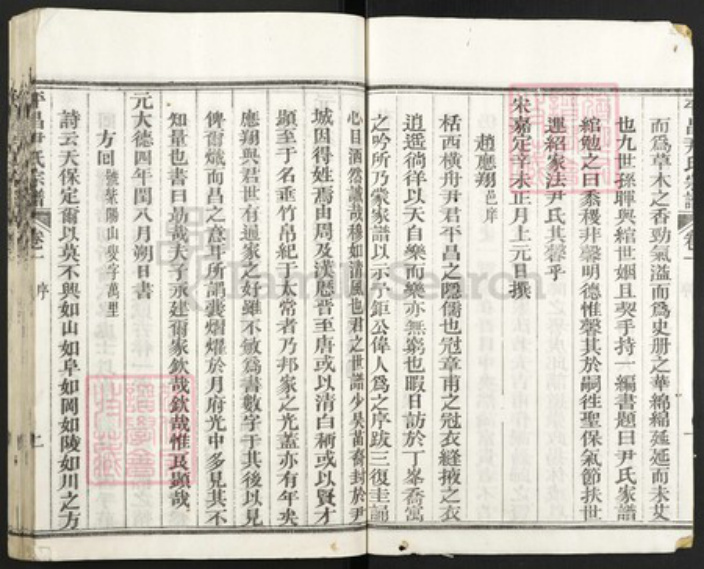 平昌尹氏宗譜
卷一
序
而爲草木之香勁氣溢而爲史册之華綿綿延延而未艾
也九世孫暉與綰世姻且契手持一編書題曰尹氏家譜
綰勉之曰黍稷非馨明德惟馨其於嗣往聖保氣節扶世
運紹家法尹氏其馨乎
宋嘉定辛未正月上元日撰
趙應翔邑庠
栝西橫舟尹君平昌之隱儒也冠章甫之冠衣縫掖之衣
逍遥徜徉以天自樂而樂亦無窮也暇日訪於丁峯喬寓
之吟所乃蒙家譜以示予鉅公偉人爲之序跋三復圭誦
心目洒然誠哉穆如清風也君之世譜少昊苗裔封於尹
城因得姓焉由周及漢歷晉至唐或以清白稱或以賢才
顯至于名垂竹帛紀于太常者乃邦家之光蓋亦有年矣
應翔與君世有通家之好雖不敏爲書數字于其後以見
俾爾熾而昌之意耳所謂裴熠燿於月府光中多見其不
知量也書曰勗哉夫子丞建爾家欽哉欽哉惟艮顯哉
元大德四年閏八月朔日書
方回號紫陽山叟字萬里
詩云天保定爾以莫不興如山如阜如岡如陵如川之方
平昌尹氏宗譜
卷一
序
上
TamilySearch